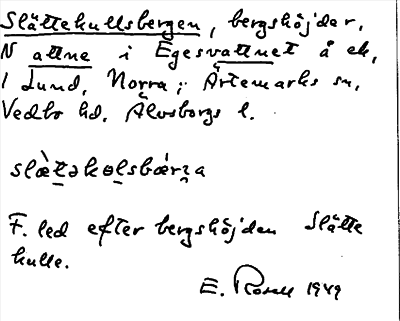 Slättekullsbergen, bergshöjder,
N attne i Egesvattnet å ek,
1 Lund, Norra; Ärtemarks sn,
Vedbo hd, Älvsborgs l.
F. led efter bergshöjden Slätte
kulle.
E. Rosell 1949